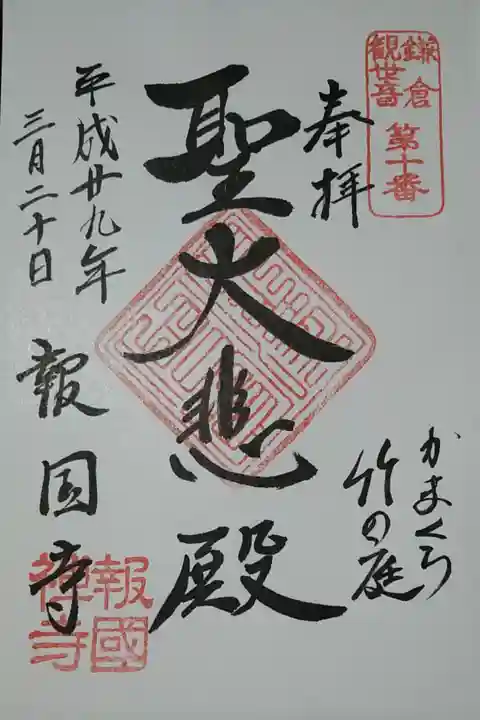 鎌倉
観世音
第十番
奉拝
かまくら
竹の庭
聖大悲殿
平成廿九年
三月二十日
報国寺
報國
禅寺